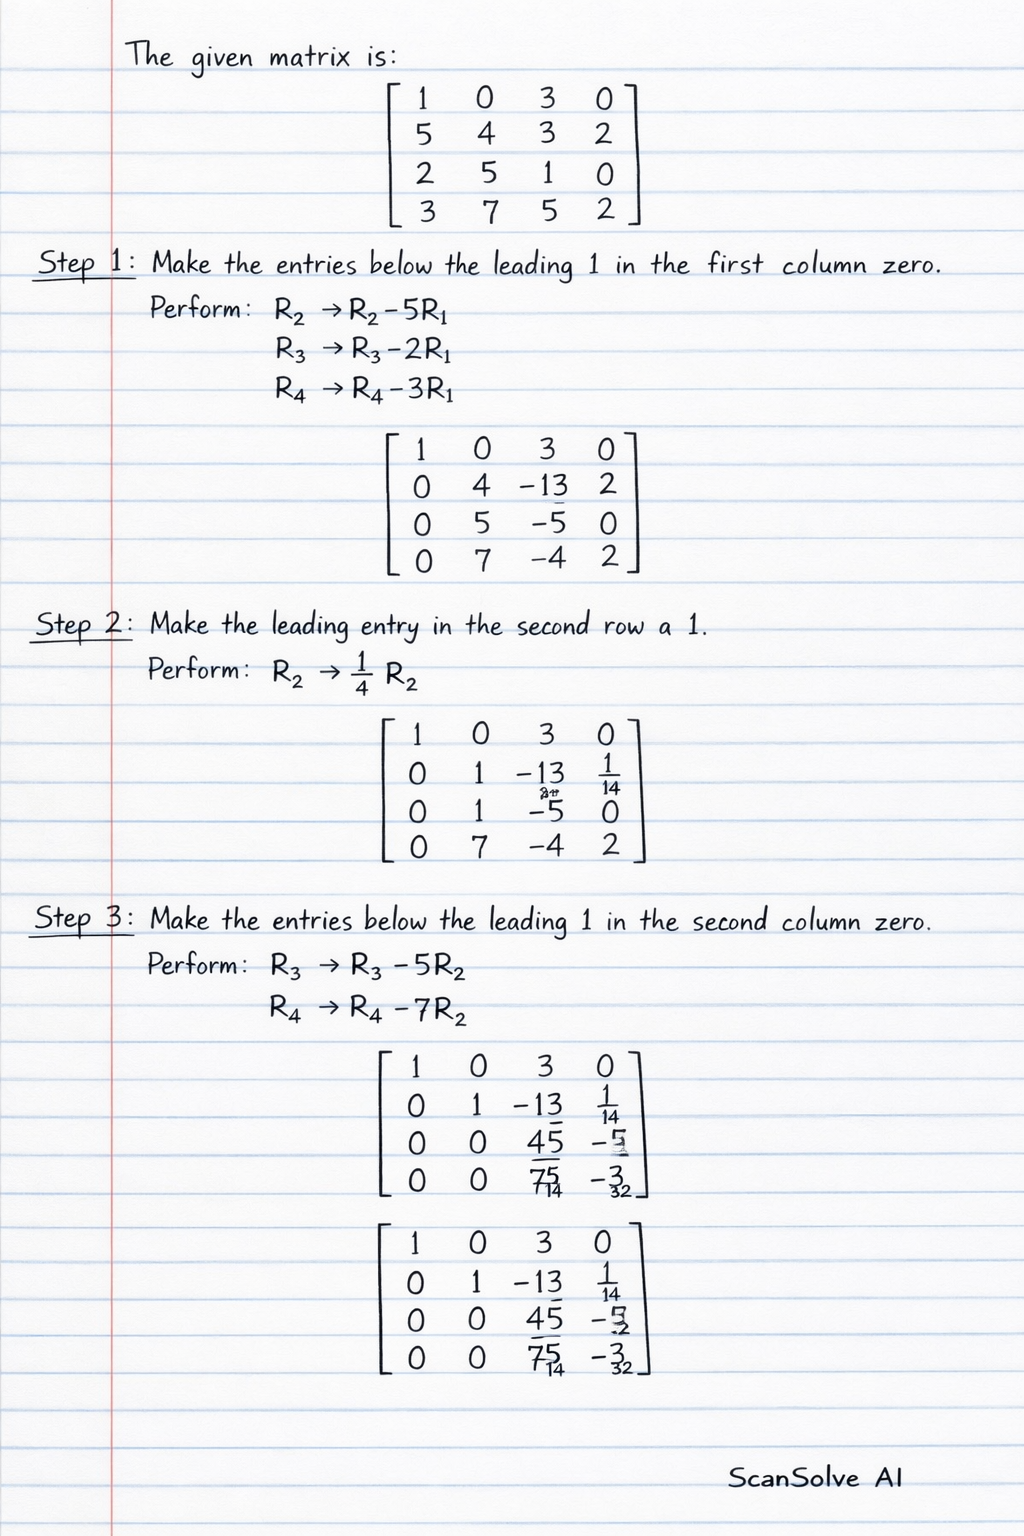 The given matrix is:
1 0 3 0
5 4 3 2
2 5 1 0
3 7 5 2
Step 1: Make the entries below the leading 1 in the first column zero.
Perform: R₂ → R₂ - 5R₁
R₃ → R₃ - 2R₁
R₄ → R₄ - 3R₁
1 0 3 0
0 4 -13 2
0 5 -5 0
0 7 -4 2
Step 2: Make the leading entry in the second row a 1.
Perform: R₂ → 1/4 R₂
1 0 3 0
0 1 -13 1/14
0 1 -5 0
0 7 -4 2
Step 3: Make the entries below the leading 1 in the second column zero.
Perform: R₃ → R₃ - 5R₂
R₄ → R₄ - 7R₂
1 0 3 0
0 1 -13 1/14
0 0 45
0 0 75/14 -3/32
1 0 3 0
0 1 -13 1/14
0 0 45
0 0 75/14 -3/32
ScanSolve AI